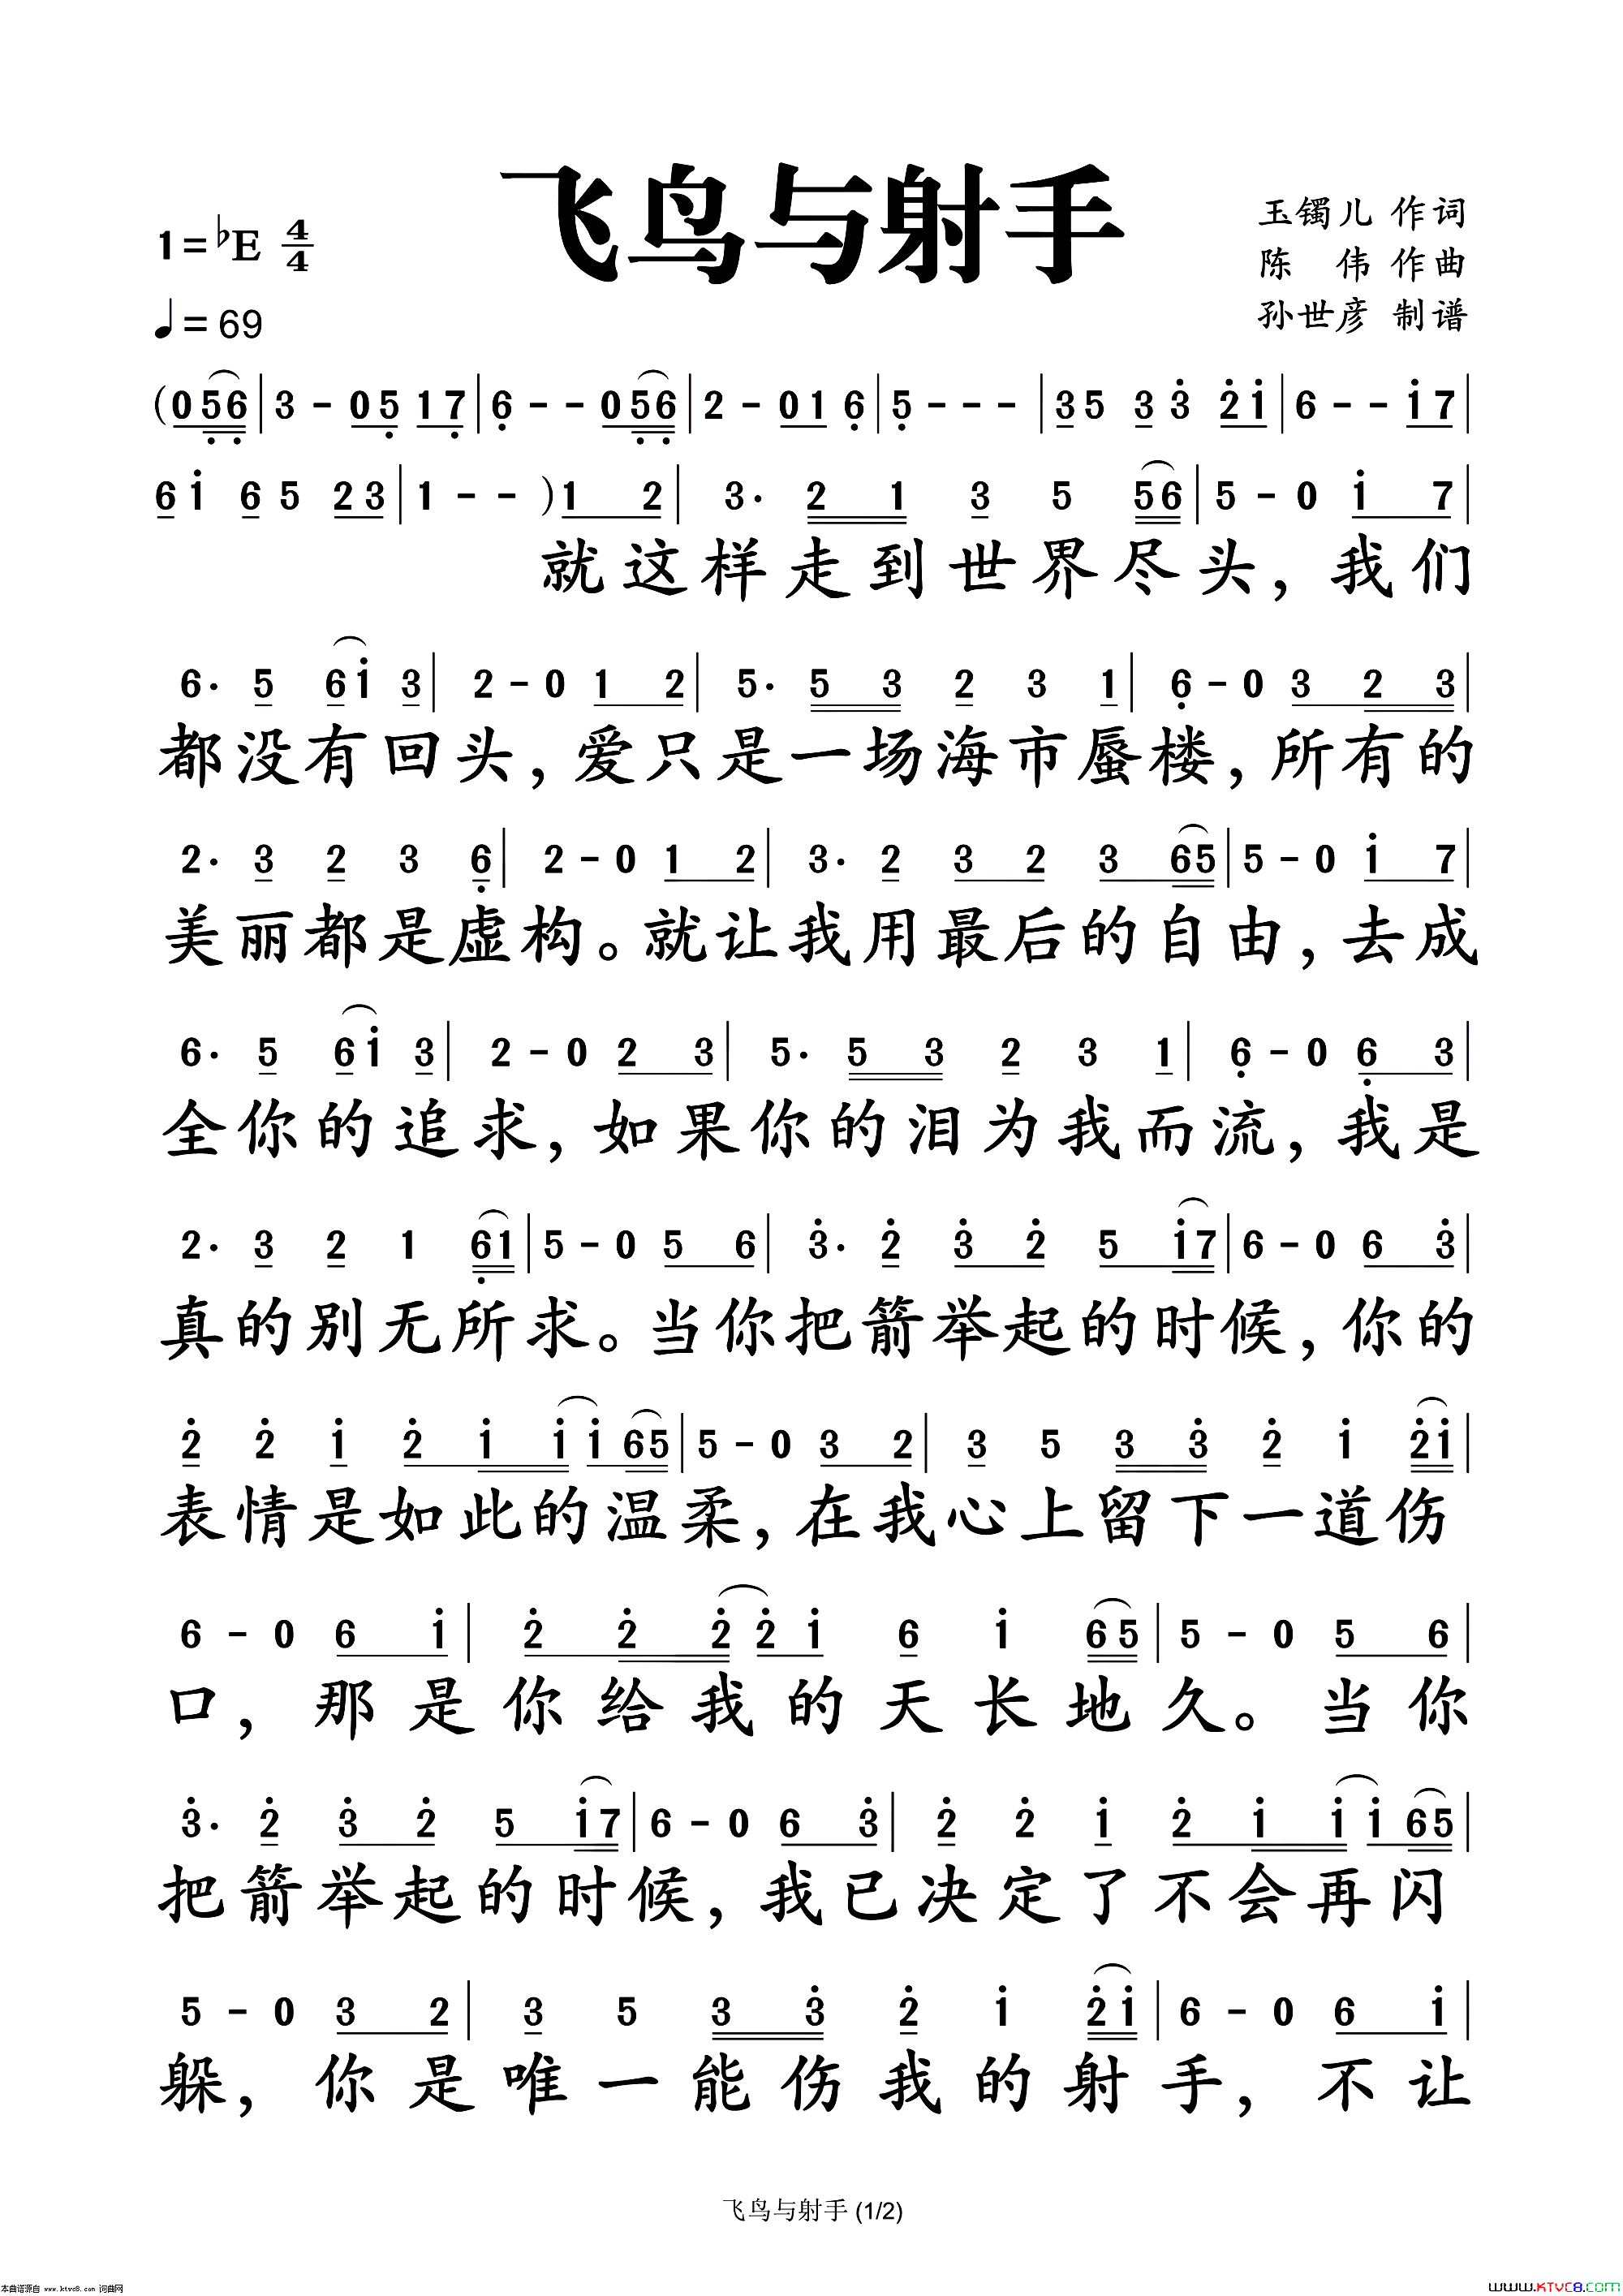 飞鸟与射手
1=♭E 4/4
♩= 69
玉镯儿 作词
陈 伟 作曲
孙世彦 制谱
(0 5̣6̣ | 3 - 0 5̣ 1 7̣ | 6̣ - - 0 5̣6̣ | 2 - 0 1 6̣ | 5̣ - - - | 3 5 3 3̇ 2̇ 1̇ | 6 - - 1̇ 7 |
6 1̇ 6 5 2 3 | 1 - - ) 1 2 | 3· 2 1 3 5 56 | 5 - 0 1̇ 7 |
就这样走到世界尽头,我们
6· 5 6 1̇ 3 | 2 - 0 1 2 | 5· 5 3 2 3 1 | 6̣ - 0 3 2 3 |
都没有回头,爱只是一场海市蜃楼,所有的
2· 3 2 3 6̣ | 2 - 0 1 2 | 3· 2 3 2 3 65 | 5 - 0 1̇ 7 |
美丽都是虚构。就让我用最后的自由,去成
6· 5 6 1̇ 3 | 2 - 0 2 3 | 5· 5 3 2 3 1 | 6̣ - 0 6̣ 3 |
全你的追求,如果你的泪为我而流,我是
2· 3 2 1 6̣1 | 5 - 0 5 6 | 3̇· 2̇ 3̇ 2̇ 5 1̇7 | 6 - 0 6 3̇ |
真的别无所求。当你把箭举起的时候,你的
2̇ 2̇ 1̇ 2̇ 1̇ 1̇ 1̇ 65 | 5 - 0 3 2 | 3 5 3 3̇ 2̇ 1̇ 2̇1̇ |
表情是如此的温柔,在我心上留下一道伤
6 - 0 6 1̇ | 2̇ 2̇ 2̇ 2̇ 1̇ 6 1̇ 65 | 5 - 0 5 6 |
口,那是你给我的天长地久。当你
3̇· 2̇ 3̇ 2̇ 5 1̇7 | 6 - 0 6 3̇ | 2̇ 2̇ 1̇ 2̇ 1̇ 1̇ 1̇ 65 |
把箭举起的时候,我已决定了不会再闪
5 - 0 3 2 | 3 5 3 3̇ 2̇ 1̇ 2̇1̇ | 6 - 0 6 1̇ |
躲,你是唯一能伤我的射手,不让
飞鸟与射手 (1/2)
本曲谱源自 www.ktvc8.com 词曲网
www.KTVC8.com